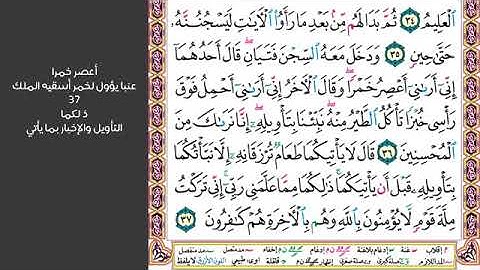 ٱلْعَلِيمُ ٣٤ ثُمَّ بَدَا لَهُم مِّنۢ بَعْدِ مَا رَأَوُا۟ ٱلْءَايَٰتِ لَيَسْجُنُنَّهُۥ
حَتَّىٰ حِينٍ ٣٥ وَدَخَلَ مَعَهُ ٱلسِّجْنَ فَتَيَانِ ۖ قَالَ أَحَدُهُمَآ
إِنِّىٓ أَرَىٰنِىٓ أَعْصِرُ خَمْرًا ۖ وَقَالَ ٱلْءَاخَرُ إِنِّىٓ أَرَىٰنِىٓ أَحْمِلُ فَوْقَ
رَأْسِى خُبْزًا تَأْكُلُ ٱلطَّيْرُ مِنْهُ ۖ نَبِّئْنَا بِتَأْوِيلِهِۦٓ ۖ إِنَّا نَرَىٰكَ مِنَ
ٱلْمُحْسِنِينَ ٣٦ قَالَ لَا يَأْتِيكُمَا طَعَامٌ تُرْزَقَانِهِۦٓ إِلَّا نَبَّأْتُكُمَا
بِتَأْوِيلِهِۦ قَبْلَ أَن يَأْتِيَكُمَا ۚ ذَٰلِكُمَا مِمَّا عَلَّمَنِى رَبِّىٓ ۚ إِنِّى تَرَكْتُ
مِلَّةَ قَوْمٍ لَّا يُؤْمِنُونَ بِٱللَّهِ وَهُم بِٱلْءَاخِرَةِ هُمْ كَٰفِرُونَ ٣٧
أعصر خمرا
عنبا يؤول لخمر أسقيه الملك
37
ذلكما
التأويل والإخبار بما يأتي